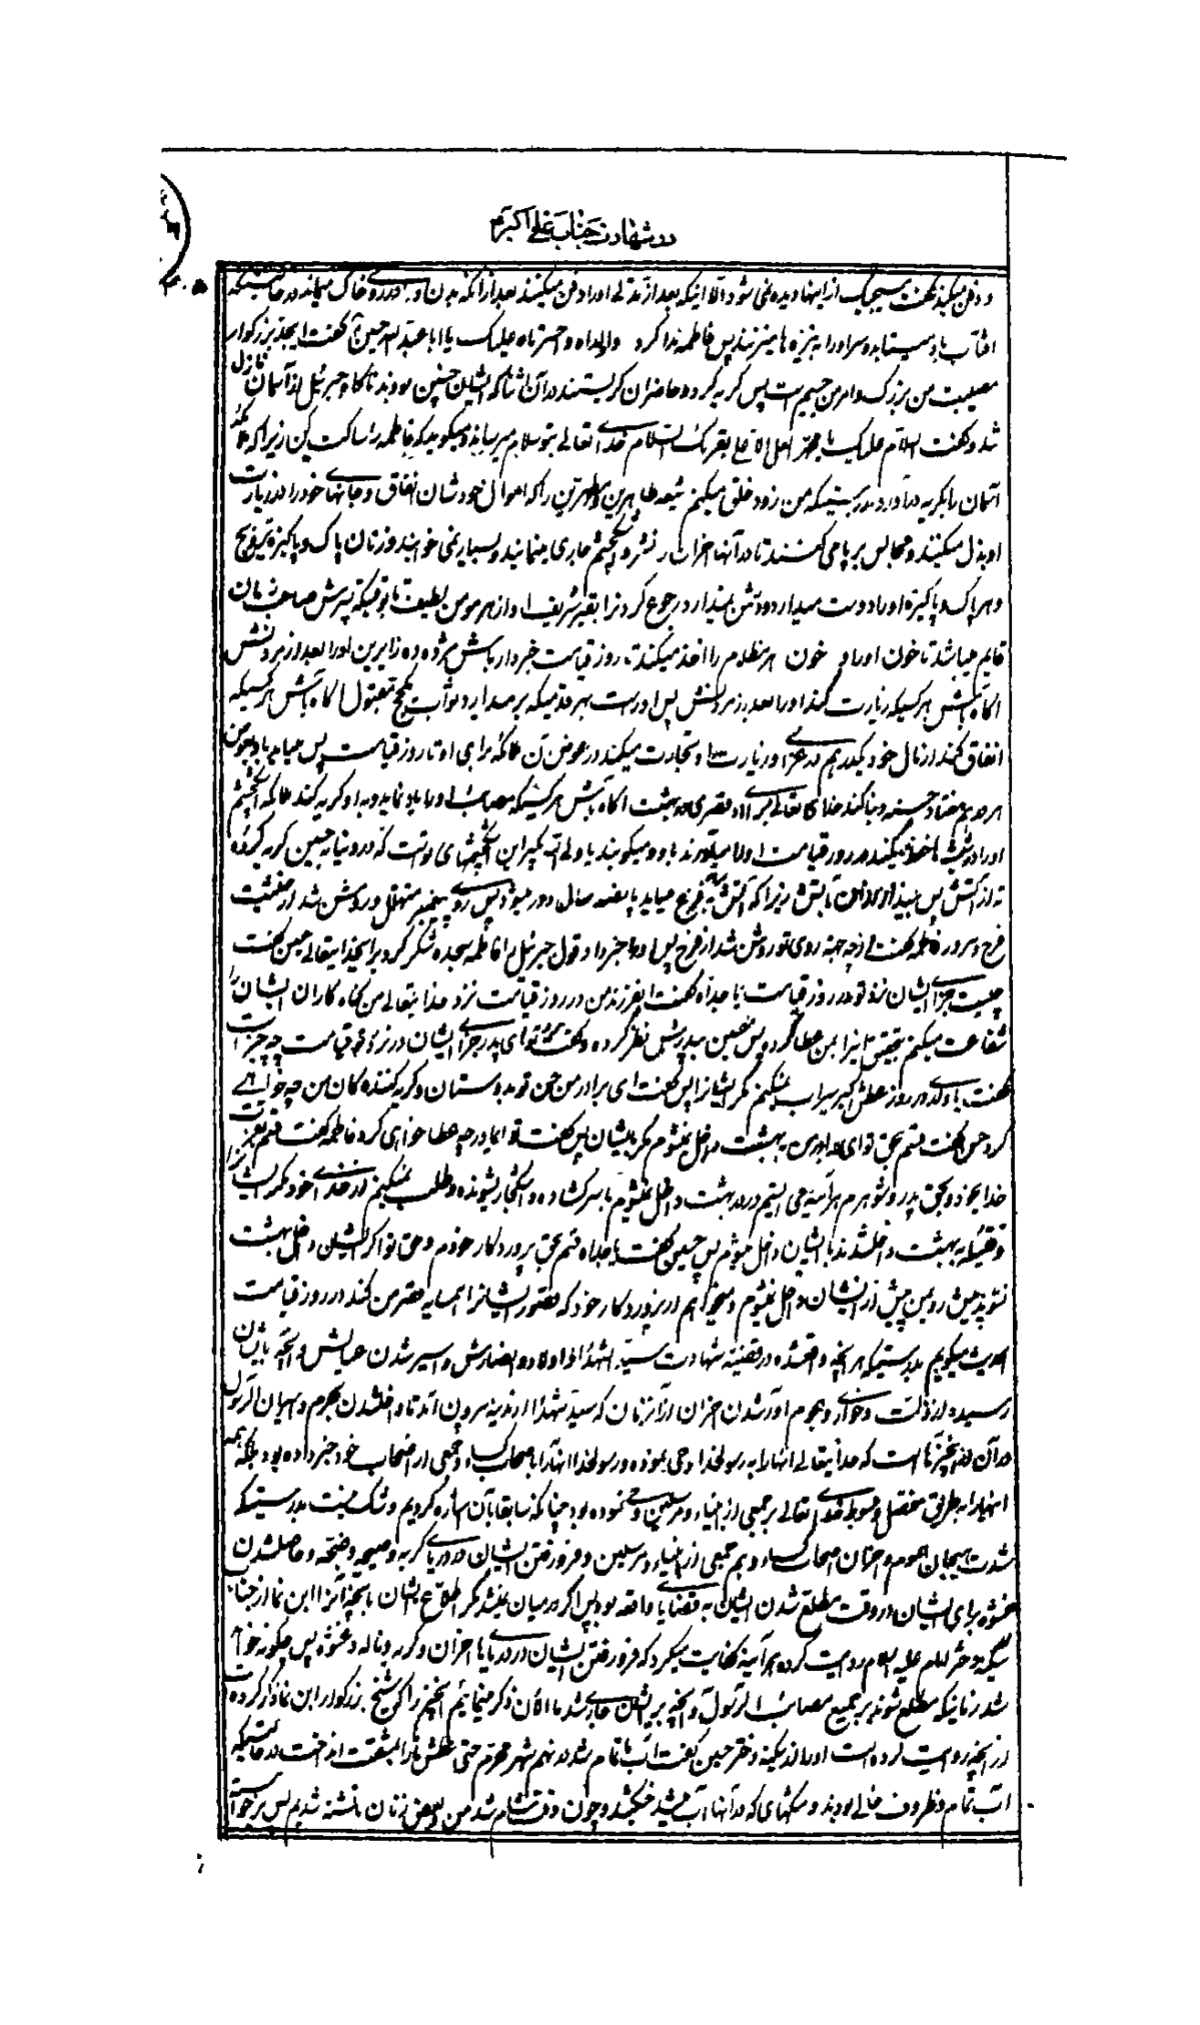 در شهادت جناب علی اکبر
و دفن میکند گفت هیچیک از اینها دیده نمی شود الا اینکه بعد از مدتی او را دفن میکنند بعد از آنکه بدن او در روی خاک میماند در حالتیکه
افتاب باو میتابد و سر او را به نیزه ها میزنند پس فاطمه ندا کرد والداه و احسرتاه علیک یا ابا عبد الله حسین گفت ای جد بزرگوار
مصیبت من بزرگ و امر من جسیم است پس گریه کرد و حاضران گریستند در آن اثنا که ایشان چنین بودند ناگاه جبرئیل از آسمان نازل
شد و گفت السلام علیک یا محمد العلی الاعلی یقرئک السلام خدای تعالی بتو سلام میرساند و میگوید که فاطمه را ساکت کن زیرا که ملائکه
آسمان را بگریه در آورد بدرستیکه من زود خلق میکنم شیعه طاهرین و مطهرین را که اموال خودشان انفاق و جانهای خود را در زیارت
او بذل میکنند و مجالس برپا می کنند تا در آنها احزان را نشر و اشک چشم جاری مینمایند و بسیار نمی خوابند و زنان پاک و پاکیزه تزویج
و هر پاک و پاکیزه او را دوست میدارد و دشمن نمیدارد و رجوع کردن را بقبر شریف او از هر مومن لطیف تا بوقتیکه پسرش صاحب زمان
قایم میباشد تا خون او را و خون هر مظلوم را اخذ میکند تا روز قیامت خبردار باش مژده ده زایرین او را بعد از مردنش
آگاه باش هر کسیکه زیارت کند او را بعد از مردنش پس او راست بهر قدمیکه بر میدارد ثواب یک حج مقبول آگاه باش هر کسیکه
انفاق کند از مال خود یکدرهم در عزا و زیارت او تجارت میکند در عوض آن ملائکه برای او تا روز قیامت پس میباید باو بعوض
هر درهم هفتاد حسنه و بنا کند خدای تعالی برای او قصری در بهشت آگاه باش هر کسیکه مصایب او را یاد نماید و به او گریه کند ملائکه اشک چشم
او را در شیشه ها اخذ میکنند در روز قیامت او را میاورند باو و میگویند یا ولی الله بگیر این اشک چشمهای تو است که در دنیا به حسین گریه کرده
فرح و سرور فاطمه گفت از چه جهة روی تو روشن شد از فرح پس او را خبر داد قول جبرئیل را فاطمه سجده شکر کرد برای خدایتعالی حسین گفت
چیست جزای ایشان نزد تو در روز قیامت یا جداه گفت ای فرزند من در روز قیامت نزد خدا یتعالی من گناه کاران ایشان را
شفاعت میکنم بتحقیق اینرا بمن عطا کرد پس حسین به پدرش نظر کرده و گفت تو ای پدر جزای ایشان در نزد تو قیامت چه چیز است
گفت یا ولدی در روز عطش اکبر سیراب نمیکنم مگر ایشانرا پس گفت ای برادر من حسن تو به دوستان و گریه کننده کان من چه خواهی
کرد حسن گفت قسم بحق تو ای برادر من به بهشت داخل نمیشوم مگر با ایشان پس گفت تو ای مادر چه عطا خواهی کرد فاطمه گفت قسم بعزت
خدای خود و بحق پدر و شوهرم هر آینه می ایستم در در بهشت داخل نمیشوم با سر گشاده و اشک جاری شونده و طلب نمیکنم از خدای خود مگر ایشانرا
وقتیکه به بهشت داخل شدند با ایشان داخل میشوم پس حسین گفت یا جداه قسم بحق پروردگار خودم و حق تو اگر ایشان داخل بهشت
نشوند پیش روی من پیش از ایشان داخل نمیشوم و میخواهم از پروردگار خود که قصور ایشانرا همسایه قصر من کند در روز قیامت
الحدیث میگویم بدرستیکه هر آنچه واقع شده در قضیه شهادت سید الشهدا و اولاد و انصارش و اسیر شدن عیالش و آنچه بایشان
رسیده از ذلت و خواری و هجوم آور شدن احزان از آنزمان که سید شهدا از مدینه بیرون آمد تا داخل شدن حرم و عیال آل رسول
در آن از چیزها است که خدا یتعالی آنها را به رسول خدا وحی نموده و رسول خدا آنها را باصحاب کساء و جمعی از اصحاب خود خبر داده بود بلکه همه
اینها را به طریق مفصل و مبسوط خدای تعالی بر جمعی از انبیاء و مرسلین وحی نموده بود چنانکه سابقا بآن اشاره کردیم و شک نیست بدرستیکه
شدت هیجان هموم و احزان اصحاب کساء و هم جمعی از انبیاء و مرسلین و فرو رفتن ایشان در دریای گریه و صیحه و ضجه و حاصل شدن
غشوه برای ایشان در وقت مطلع شدن ایشان به قضایا واقعه بود پس اگر در میان نمیشد مگر اطلاع ایشان بآنچه آنرا ابن نما از جناب
سکینه دختر امام علیه السلام روایت کرده هر آینه کفایت میکرد که فرو رفتن ایشان در دریای احزان و گریه و ناله و غشوه پس چگونه خواهد
شد زمانیکه مطلع شوند بر جمیع مصائب آل رسول و آنچه بر ایشان جاری شد ما الان ذکر مینمائیم آنچیز را که شیخ بزرگوار ابن نما ذکر کرده است
از آنچه روایت کرده است او را از سکینه دختر حسین گفت آب ما تمام شد در نهم شهر محرم حتی عطش ما را بمشقت انداخت در حالتیکه
آب تمام و ظروف خالی بودند و مشکهای که در آنها آب میشد خشکیدند و چون وقت شام شد من و بعضی زنان ما تشنه شدیم پس برخواست